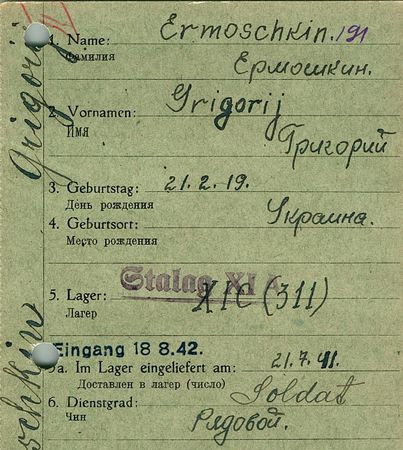 1. Name: Ermoschkin. 191
Фамилия Ермошкин.
2. Vornamen: Grigorij
Имя Григорий
3. Geburtstag: 21.2.19.
День рождения
4. Geburtsort: Украина.
Место рождения
Stalag XI A
5. Lager: XIC (311)
Лагер
Eingang 18 8.42.
5a. Im Lager eingeliefert am: 21.7.41.
Доставлен в лагер (число)
6. Dienstgrad: Soldat
Чин Рядовой.
Grigorij